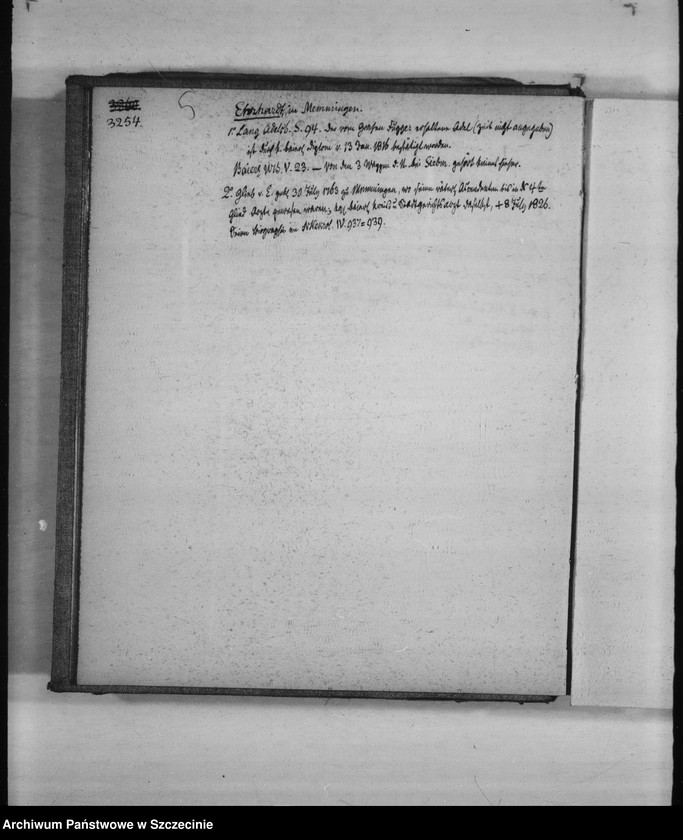 3254.
Eberhardt, in Memmingen.
1. Lang Adelsb. S. 94. Der vom Grafen Fugger erhaltene Adel (Zeit nicht angegeben)
ist durch baiersch. Diplom v. 13 Jan. 1816 bestätigt worden.
Baiers. Wb. V. 23. — Von den 3 Wappen d. N. bei Siebm. gehört keines hieher.
2. v. E. geb. 30 July 1763 zu Memmingen, wo seine väterl. bis in das 4te
Glied Aerzte gewesen waren, kgl. baiersch. u. Stadtgerichtsarzt daselbst, + 8 July 1826.
Seine Biographie in N. Nekrol. IV. 937=939.
Archiwum Państwowe w Szczecinie